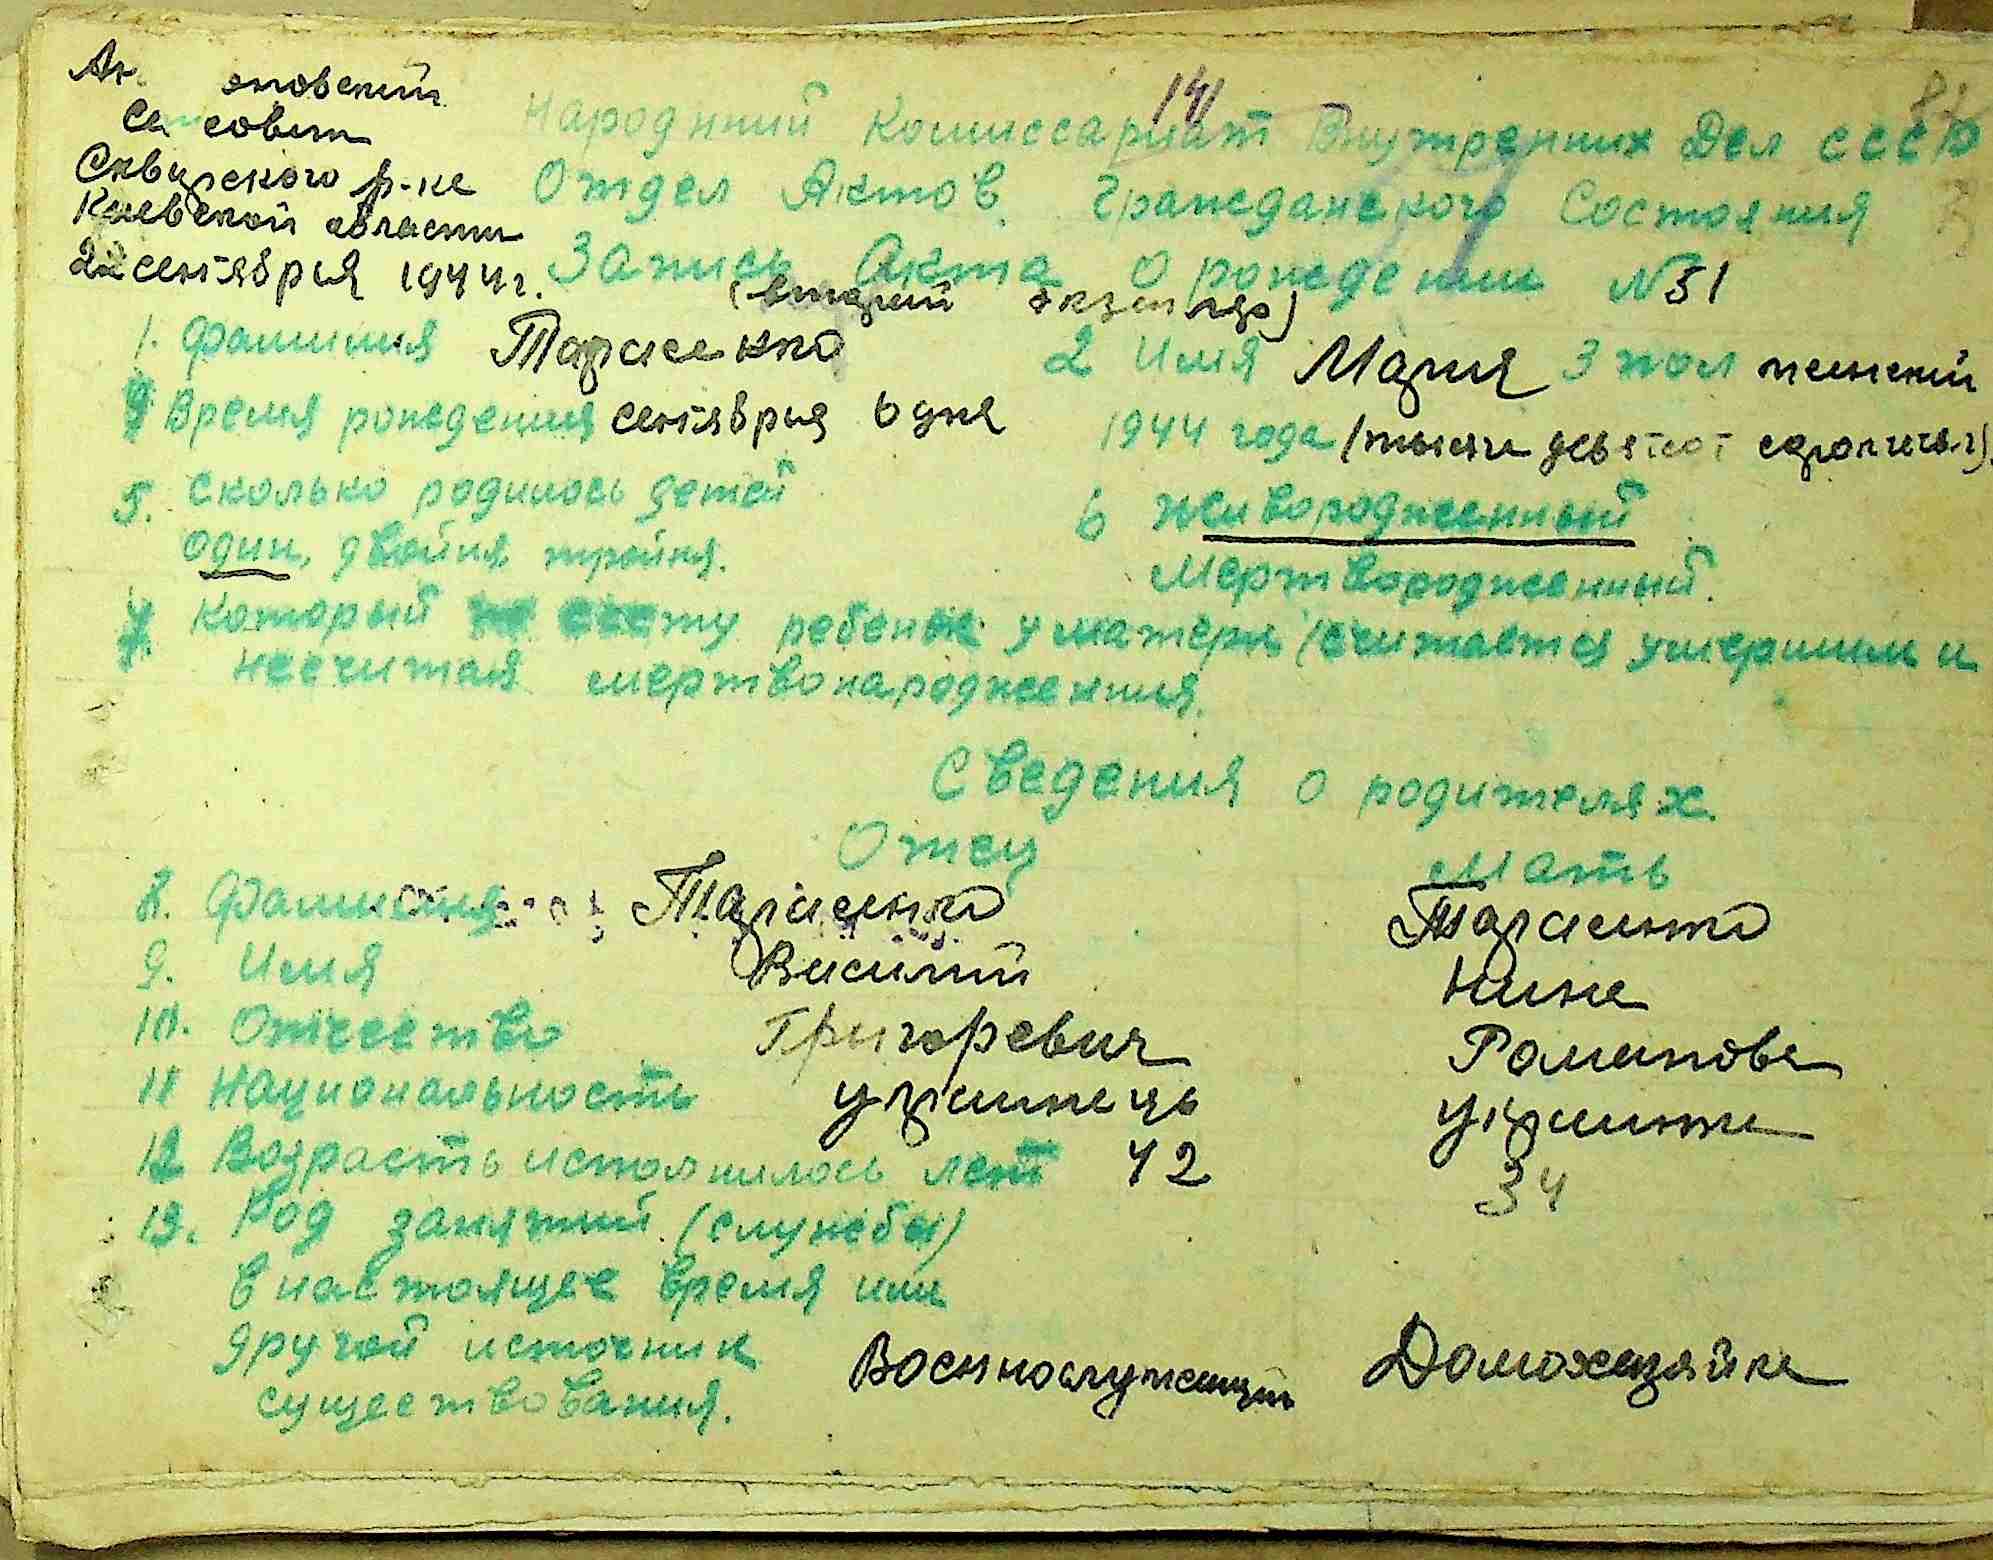 совет
Сквирского р-на
Киевской области
сентября 1944 г.
141
Народнний Комиссариат Внутренних Дел СССР
Отдел Актов Гражданского Состояния
Запись Акта о рождении №51
(второй экземпляр)
1. Фамилия Тарасенко 2 Имя Мария 3 пол женский
Время рождения сентября 6 дня 1944 года (тысяча девятсот сорок
5. Сколько родилось детей
один, двойня тройня.
6 Живорожденный
Мертворожденный.
7. Который ребенок у матери (считается умершим и
несчитая мертвонарождения.
Сведения о родителях
Отец Мать
8. Фамилия Тарасенко Тарасенко
9. Имя Василий Нина
10. Отчество Григоревич Романовна
11 Национальность украинець украинка
12 Возрасть исполнилось лет 42 34
13. Род занятий (службы)
в настоящее время или
другой источник
существования. Военнослужащий Домохозяйка